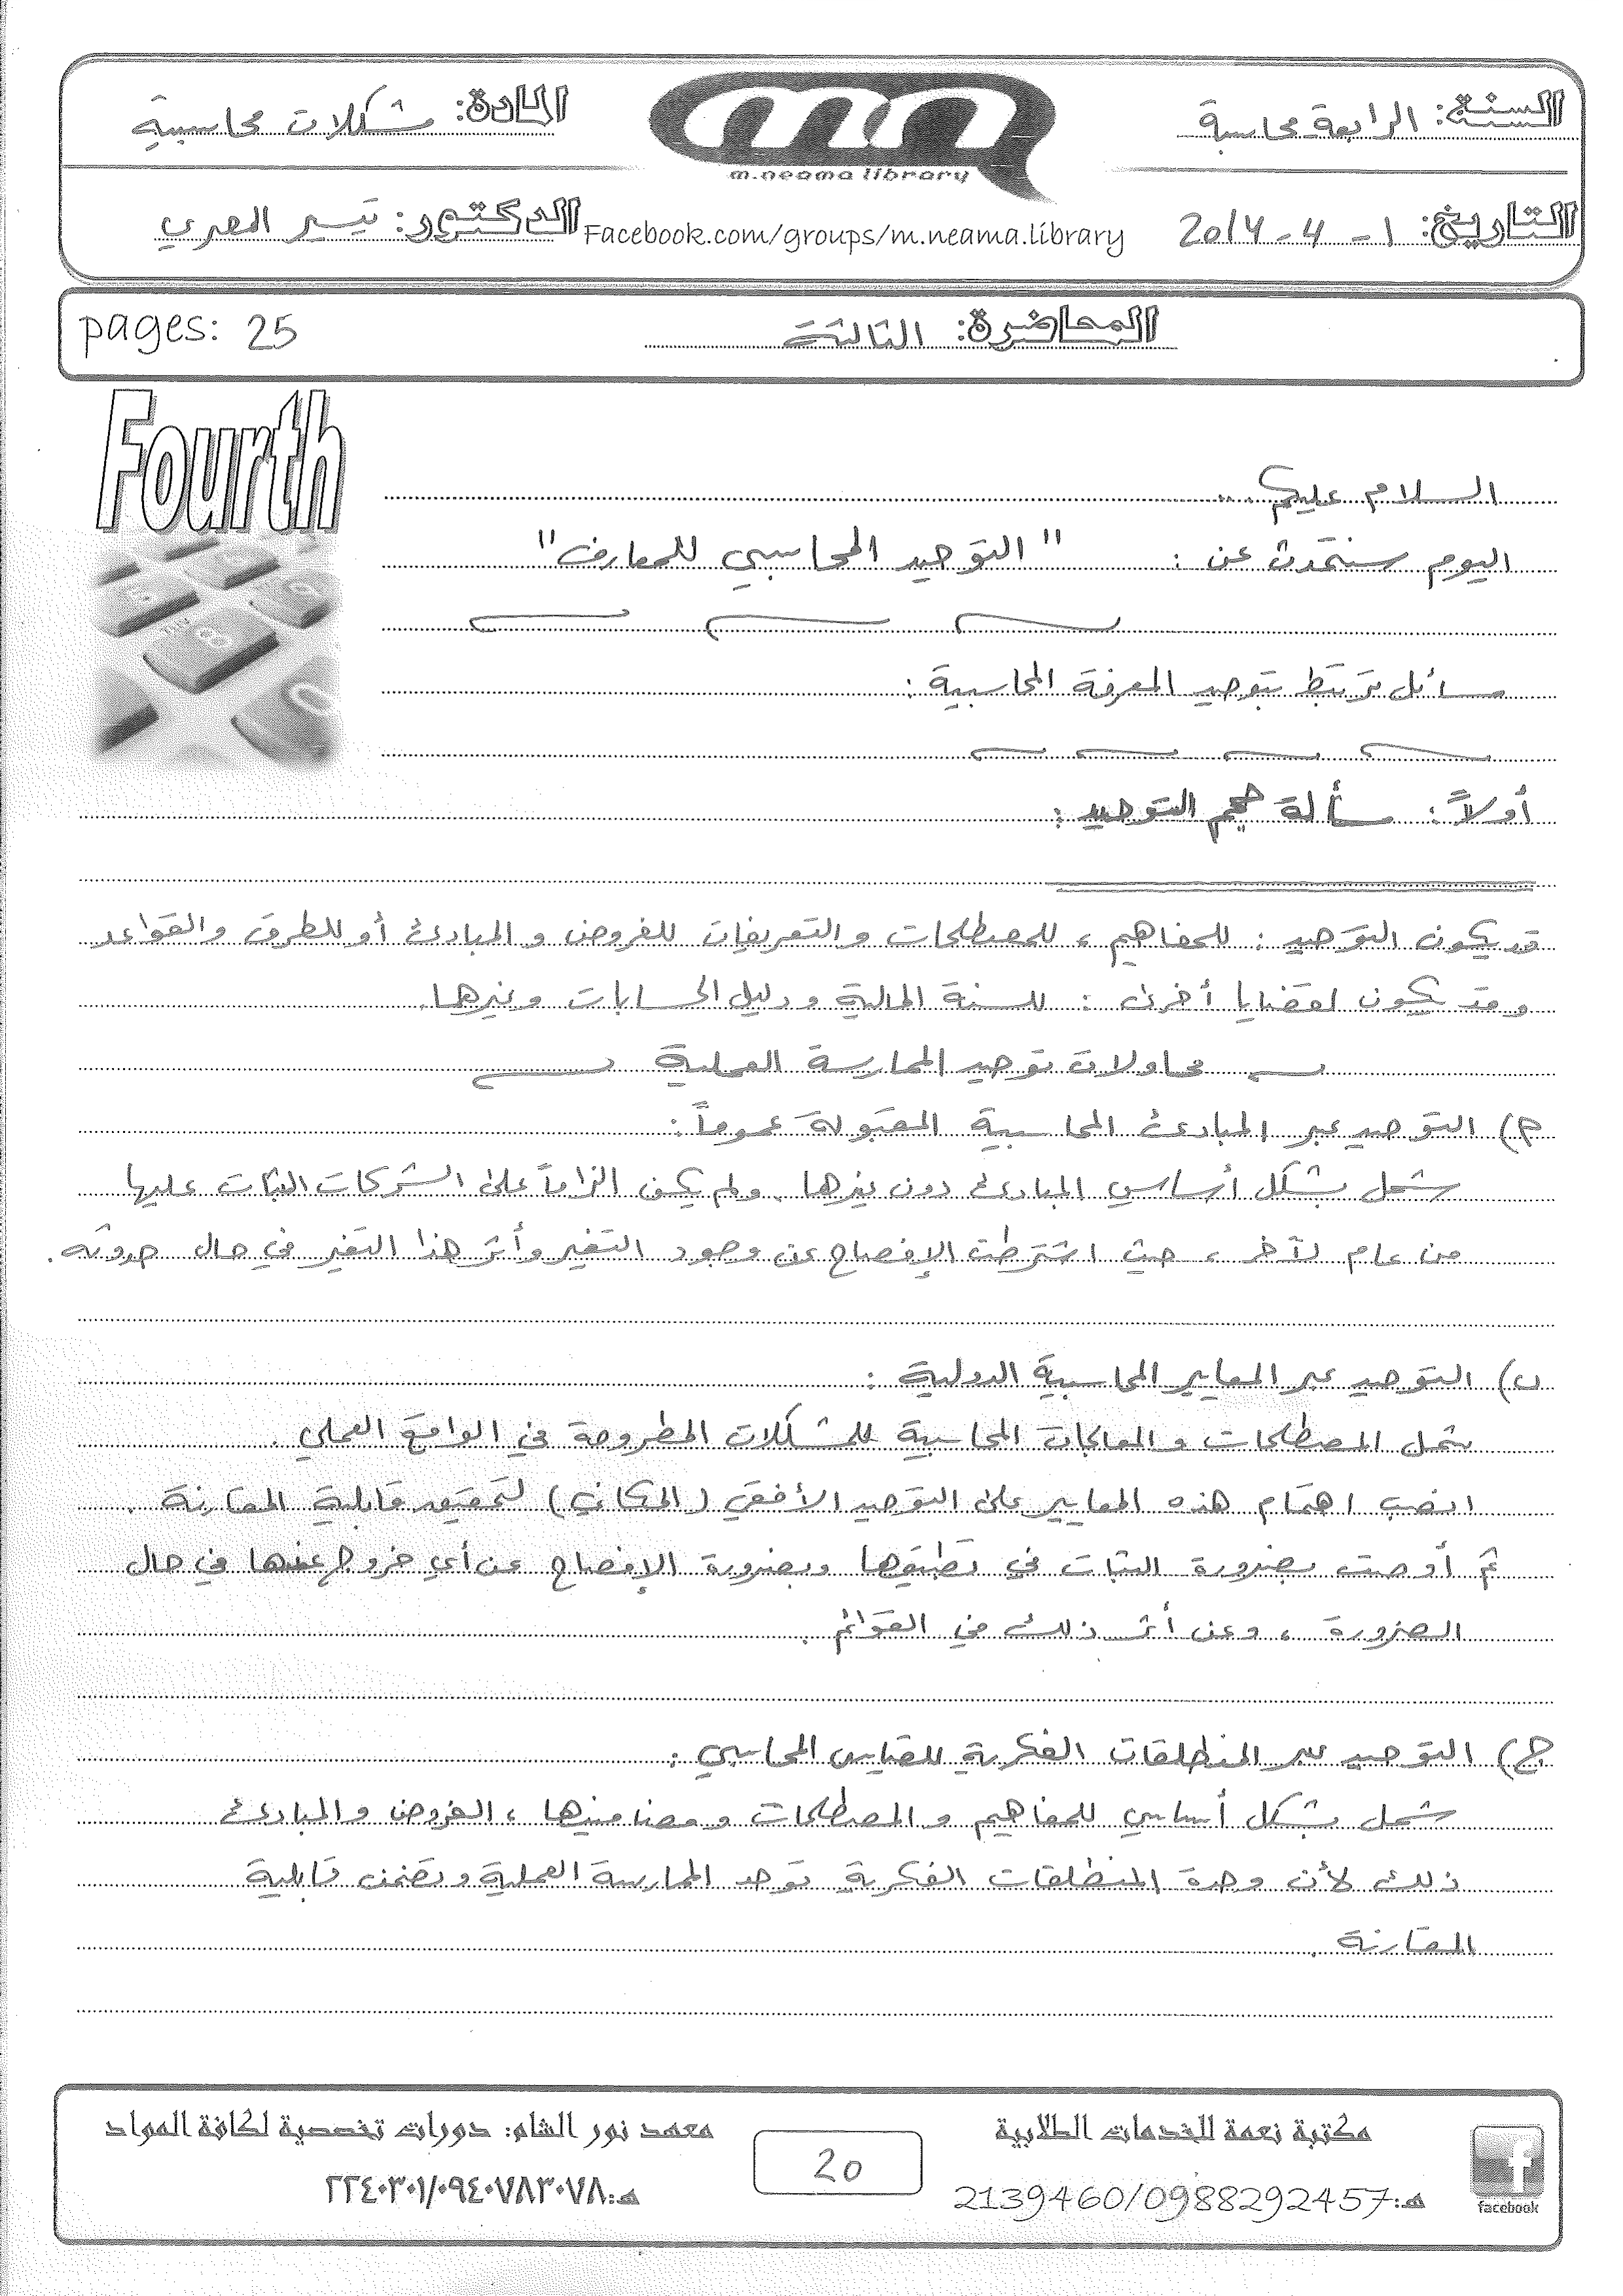 السنة: الرابعة محاسبة
المادة: مشكلات محاسبية
m.neama library
التاريخ: 1-4-2014
Facebook.com/groups/m.neama.library
الدكتور: تيسير المصري
المحاضرة: الثالثة
pages: 25
Fourth
السلام عليكم...
اليوم سنتحدث عن: "التوحيد المحاسبي للمعارف"
مسائل ترتبط بتوحيد المعرفة المحاسبية:
أولاً: مسألة حجم التوحيد:
قد يكون التوحيد: للمفاهيم، للمصطلحات والتعريفات للفروض والمبادئ أو للطرق والقواعد
وقد يكون لقضايا أخرى: للسنة المالية ودليل الحسابات وغيرها.
محاولات توحيد الممارسة العملية
م) التوحيد عبر المبادئ المحاسبية المقبولة عموماً:
شمل بشكل أساسي المبادئ دون غيرها. ولم يكن الزاماً على الشركات الثبات عليها
من عام لآخر، حيث اشترطت الإفصاح عن وجود التغير وأثر هذا التغير في حال حدوثه.
ب) التوحيد عبر المعايير المحاسبية الدولية:
شمل المصطلحات والمعالجات المحاسبية للمشكلات المطروحة في الواقع العملي.
انصب اهتمام هذه المعايير على التوحيد الأفقي (المكاني) لتحقيق قابلية المقارنة.
ثم أوصت بضرورة الثبات في تطبيقها وبضرورة الإفصاح عن أي خروج عنها في حال
الضرورة، وعن أثر ذلك في القوائم.
ج) التوحيد عبر المنطلقات الفكرية للقياس المحاسبي:
شمل بشكل أساسي للمفاهيم والمصطلحات ومضامينها، الفروض والمبادئ
ذلك لأن وحدة المنطلقات الفكرية توحد الممارسة العملية وتضمن قابلية
المقارنة.
مكتبة نعمة للخدمات الطلابية
هـ: 2139460/0988292457
facebook
20
معهد نور الشام: دورات تخصصية لكافة المواد
هـ: ٢٢٤٠٣٠١/٠٩٤٠٧٨٣٠٧٨